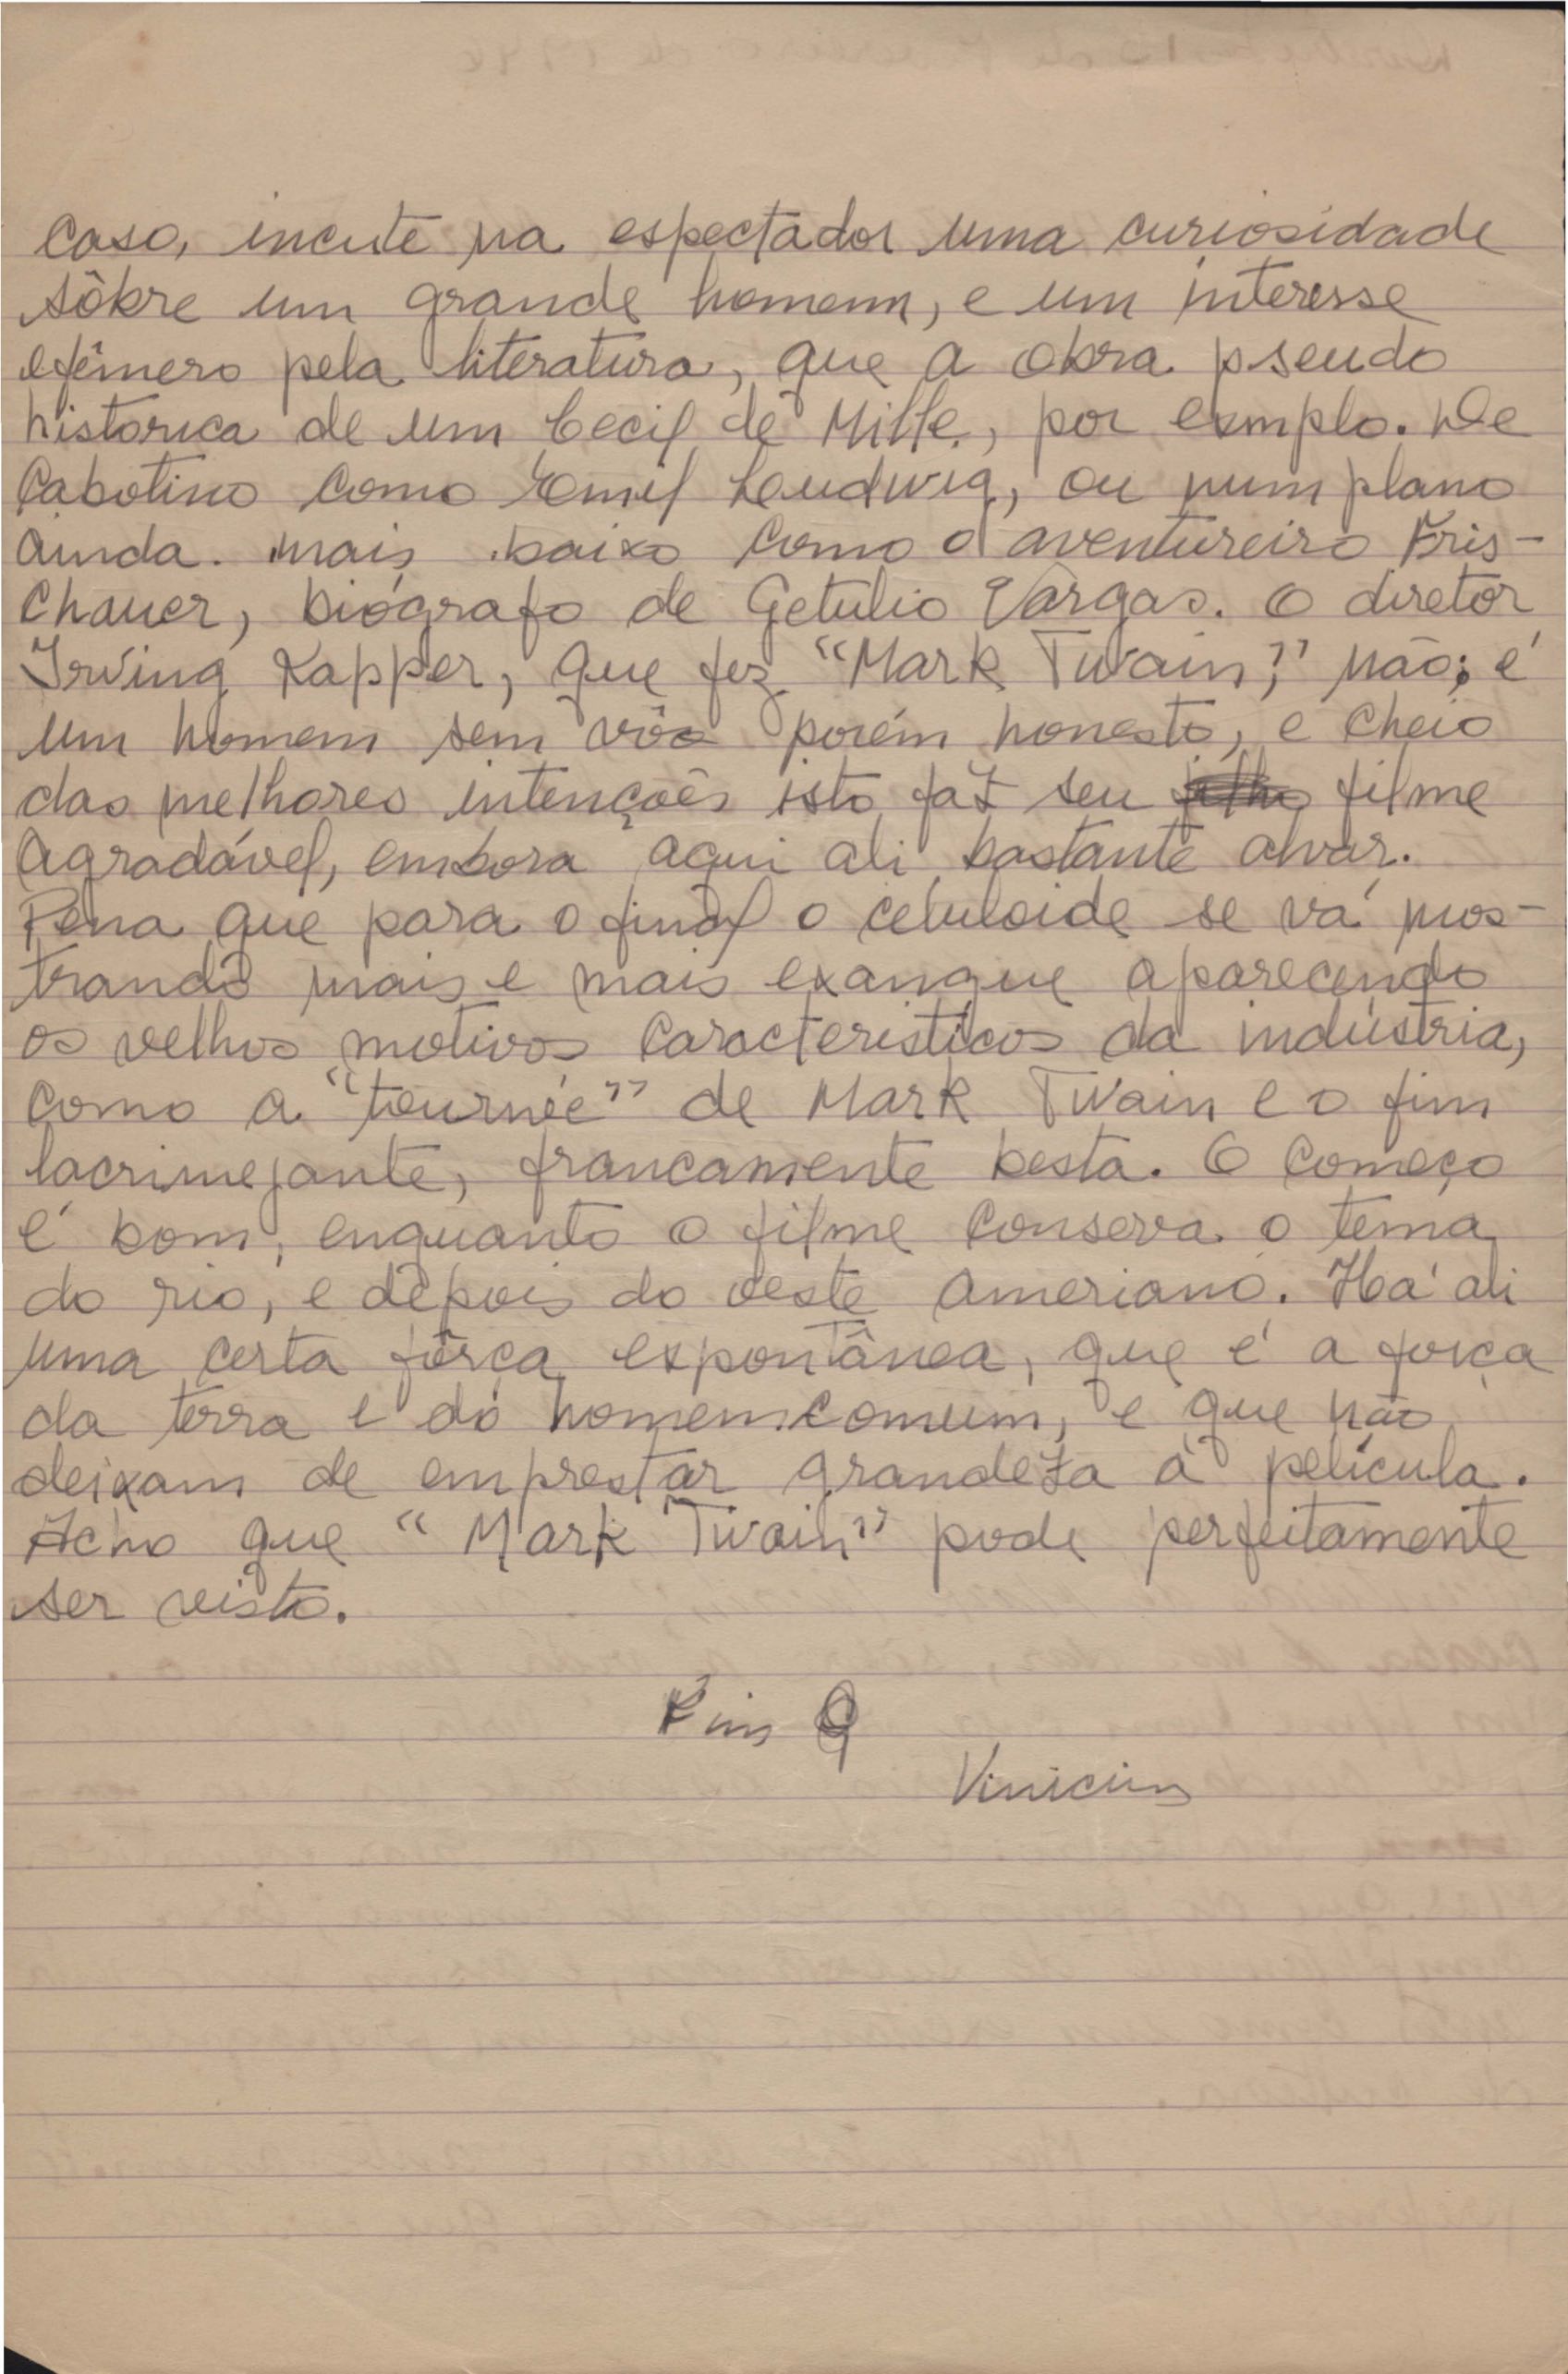 caso, incute na espectador uma curiosidade
sôbre um grande homem, e um interesse
efêmero pela literatura, que a obra pseudo
historica de um Cecil de Mille, por exmplo. De
Cabotino como Emil Leudwig, ou num plano
ainda. mais baixo como o aventureiro Fris-
chauer, biógrafo de Getulio Vargas. O diretor
Irving Kapper, que fez "Mark Twain," não; é
um homem sem vôo porém honesto, e cheio
das melhores intenções isto faz seu filme
agradável, embora aqui ali bastante alvar.
Pena que para o final o celuloide se vá mos-
trando mais e mais exangue aparecendo
os velhos motivos caracteristicos da indústria,
como a "tournée" de Mark Twain e o fim
lacrimejante, francamente besta. O começo
é bom, enquanto o filme conserva o tema
do rio, e depois do oeste ameriano. Há ali
uma certa fôrça expontânea, que é a força
da terra e do homem comum, e que não
deixam de emprestar grandeza à película.
Acho que "Mark Twain" pode perfeitamente
ser visto.
Fim
Vinicius